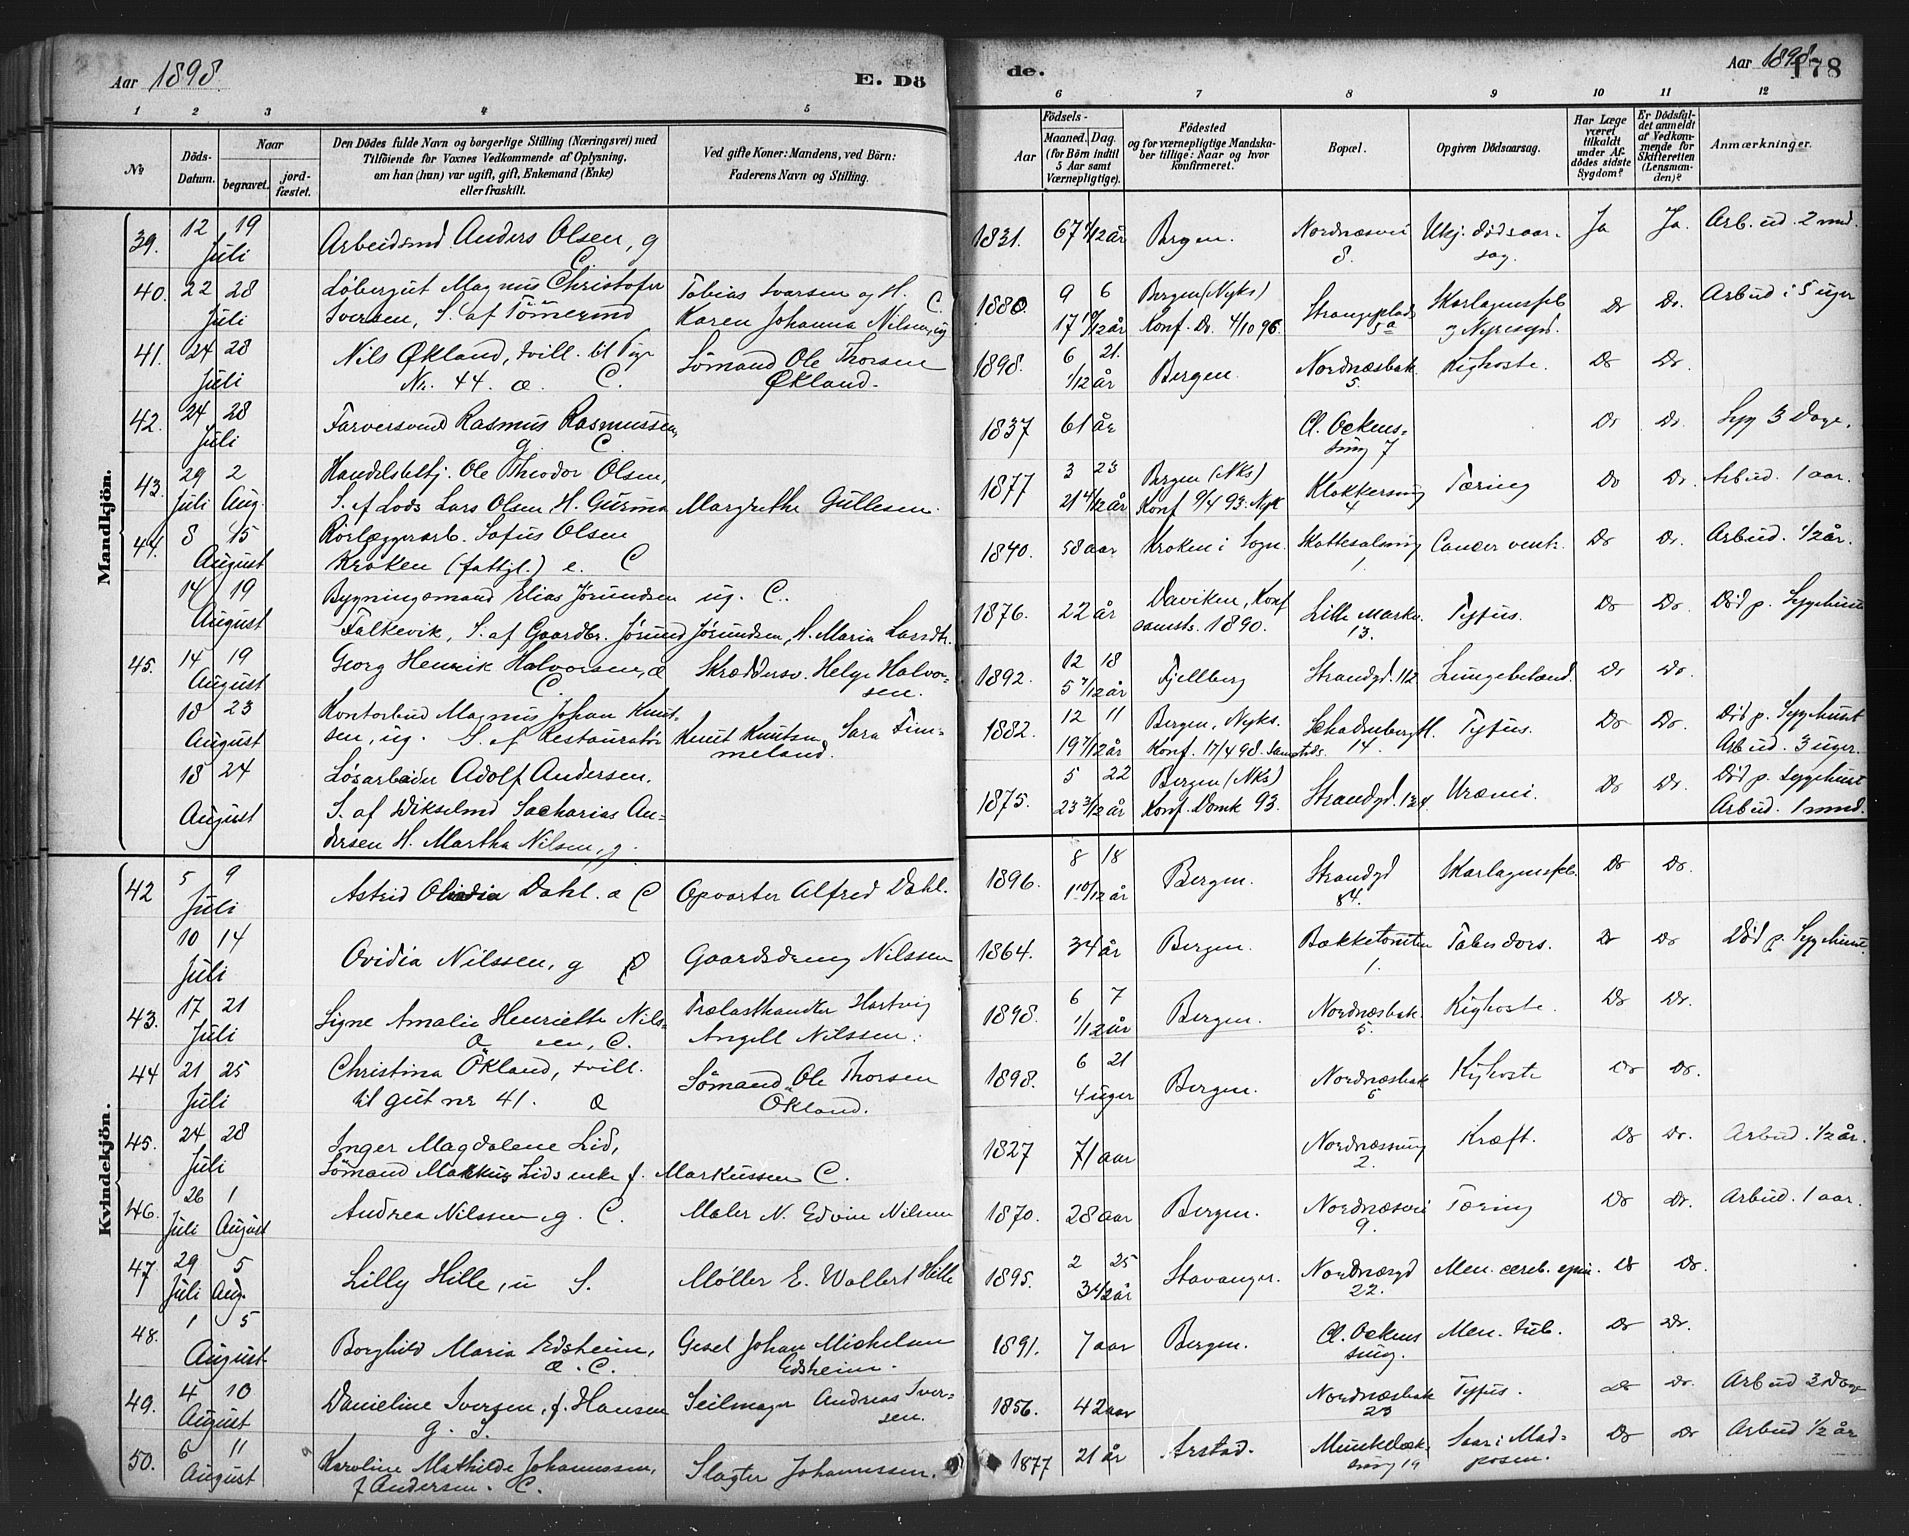 Aar 1898.
E. Dö
de.
Aar 1898
178
1 2 3 4 5
6 7 8 9 10 11 12
No
Döds-
Datum.
Naar
begravet.
jord-
fæstet.
Den Dödes fulde Navn og borgerlige Stilling (Næringsvei) med
Tilföiende for Voxnes Vedkommende af Oplysning,
om han (hun) var ugift, gift, Enkemand (Enke)
eller fraskilt.
Ved gifte Koner: Mandens, ved Börn:
Faderens Navn og Stilling.
Födsels-
Aar
Maaned. Dag.
(for Börn indtil
5 Aar samt
Værnepligtige).
Födested
og for værnepligtige Mandska-
ber tillige: Naar og hvor
konfirmeret.
Bopæl.
Opgiven Dödsaarsag.
Har Læge
været
tilkaldt
under Af-
dödes sidste
Sygdom?
Er Dödsfal-
det anmeldt
af Vedkom-
mende for
Skifteretten
(Lensman-
den)?
Anmærkninger.
Mandkjön.
39. 12 19 Juli
Arbeidsmd Anders Olsen, g
C.
1831. 67 4/12 år Bergen. Nordnæsvei 8. Ukj. dödsaar-
sag. Ja Ja. Arb. ud. 2 md.
40. 22 28 Juli
Løbergut Magnus Christofer
Iversen, S. af Tömermd
Tobias Ivarsen og H. C.
Karen Johanna Nilsen, ug
1880 9 6 Bergen (Nyks)
17 10/12 år Konf. Do. 4/10 96. Strangeplads 5a Skarlagensfeb
og Nyresygd. Do Do. Arbud i 5 uger
41. 24 28 Juli
Nils Økland, tvill. til Pige
Nr. 44. æ C.
Sömand Ole Thorsen
Økland.
1898. 6 21.
1/12 år Bergen. Nordnæsbak. 5. Kighoste. Do Do.
42. 24 28 Juli
Farversvend Rasmus Rasmussen,
g. C.
1837 61 år Cl. Ockens-
smug 7 Do Do. Syg 3 Dage.
43. 29 2
Juli Aug.
Handelsbetj. Ole Theodor Olsen,
S. af Lods Lars Olsen H. Gurina Margrethe Gullesen.
1877 3 23 Bergen (Nks)
21 4/12 år Konf 9/4 93. Nyk Klokkersmug 4 Tæring Do Do. Arbud. 1 aar.
44. 8 15 August
Rörlæggerarb. Sofus Olsen
Kroken (fattgl.) e. C
1840. 58 aar Kroken i Sogn. Skottesalsmug 1. Cancer ventr. Do Do. Arbud. 1/2 år.
14 19 August
Bygningsmand Elias Jörundsen ug. C.
Falkevik, S. af Gaardbr. Jörund Jörundsen, H. Maria Larsdtr.
1876. 22 år Daviken, Konf
samsts. 1890. Lille Marke. 13. Tyfus. Do Do. Död p. Sygehuset
45. 14 19 August
Georg Henrik Halvorsen, æ
C.
Skræddersv. Helge Halvor-
sen.
1892. 12 18
5 7/12 år Fjellberg Strandgd. 112 Lungebetænd. Do Do.
18 23 August
Kontorbud Magnus Johan Knut-
sen, ug. S. af Restauratör
Knut Knutsen, Sara Tim-
meland.
1882. 12 11 Bergen, Nyks.
19 7/12 år Konf. 17/4 98. Samsteds. 14. Tyfus. Do Do. Död p. Sygehuset
Arbud. 3 uger.
18 24 August
Lösarbeider Adolf Andersen.
S. af Dikselmd Sacharias An-
dersen H. Martha Nilsen, g.
1875. 5 22 Bergen (Nks)
23 3/12 år Konf. Domk 93. Strandgd. 134 Uræmi. Do Do. Död p. Sygehuset
Arbud. 1 mnd.
Kvindekjön.
42 5 9 Juli
Astrid Dahl. æ C Opvarter Alfred Dahl.
1896. 8 18
1 10/12 år Bergen. Strandgd 84. Skarlagensfeb. Do Do.
10 14 Juli
Ovidia Nilssen, g C Gaardsdreng Nilssen
1864. 34 år Bergen. Bakketomten 1. Tabes dors. Do Do Död p. Sygehuset.
43. 17 21 Juli
Signe Amalie Henriette Nils-
æ sen, C.
Trælasthandler Hartvig
Angell Nilssen.
1898. 6 7
1/12 år Bergen. Nordnæsbak. 5. Kighoste. Do Do.
44 21 25 Juli
Christina Ökland, tvill.
til gut nr 41. æ
Sömand Ole Thorsen
Ökland.
1898. 6 21
4 uger Bergen. Nordnæsbak 5 Kighoste Do Do.
45. 24 28 Juli
Inger Magdalene Lid,
Sömand Markus Lids enke f. Markussen C.
1827 71 aar Nordnæssmug 2. Kræft. Do Do. Arbud. 1/2 år.
46. 26 1
Juli August
Andrea Nilssen g. C. Maler N. Edvin Nilsen
1870. 28 aar Bergen. Nordnæsvei 9. Tæring Do Do. Arbud. 1 aar.
47. 29 5
Juli Aug.
Lilly Hille, u S. Möller E. Wollert Hille
1895. 2 25
3 4/12 år Stavanger. Nordnæsgd 22. Men. cereb. spin. Do Do.
48. 1 5 August.
Borghild Maria Edsheim,
æ. C.
Gesel Johan Michelsen
Edsheim.
1891. 7 aar Bergen. Cl. Ockens
smug. Men. tub. Do Do.
49. 4 10 August
Danieline Iversen, f. Hansen
g. S.
Seilmager Andreas Iver-
sen.
1856. 42 aar Nordnæsbak 23 Tyfus. Do Do. Arbud 3 Dage
50. 6 11 August
Karoline Mathilde Johannssen,
f Andersen. C.
Slagter Johannssen.
1877 21 år Arstad. Munkebæk-
smug 19 Saar i Mad-
posen. Do Do Arbud 1/2 år